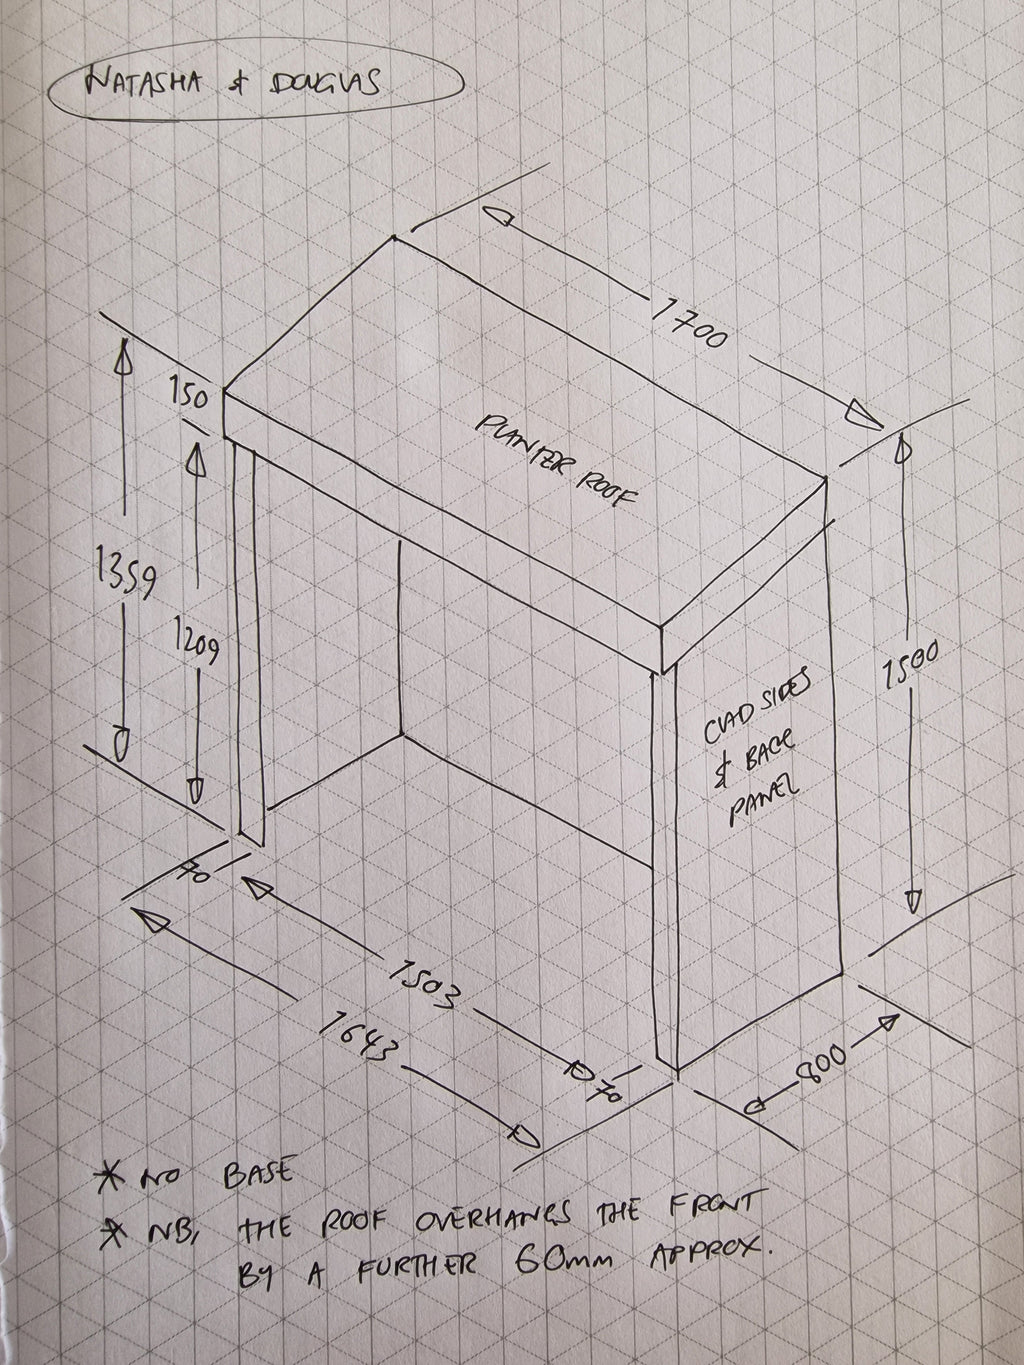 NATASHA & DOUGLAS
1700
150
PLANTER ROOF
1359
1209
1500
CLAD SIDES
& BACK
PANEL
70
1503
1643
70
800
* NO BASE
* NB, THE ROOF OVERHANGS THE FRONT
BY A FURTHER 60mm APPROX.